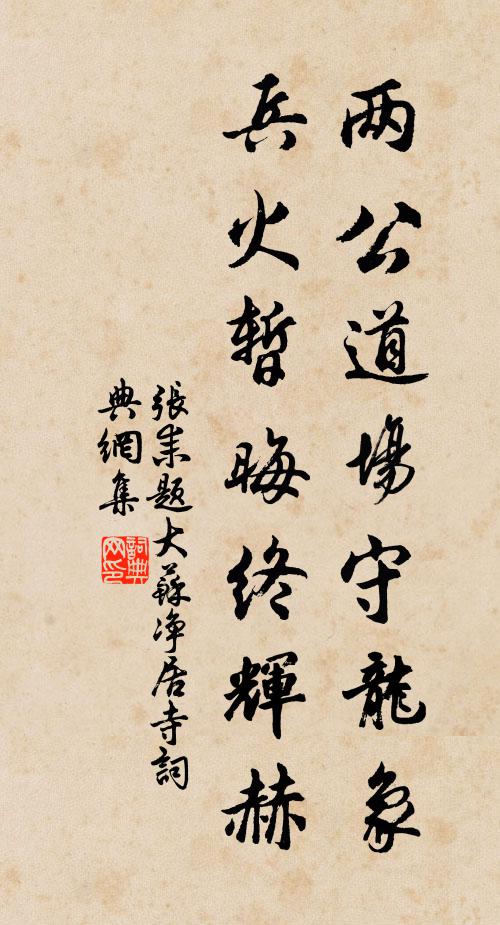 两公道場守龍象
兵火暫晦終輝赫
張耒題大蘇净居寺詞
典網集
詞典
网印